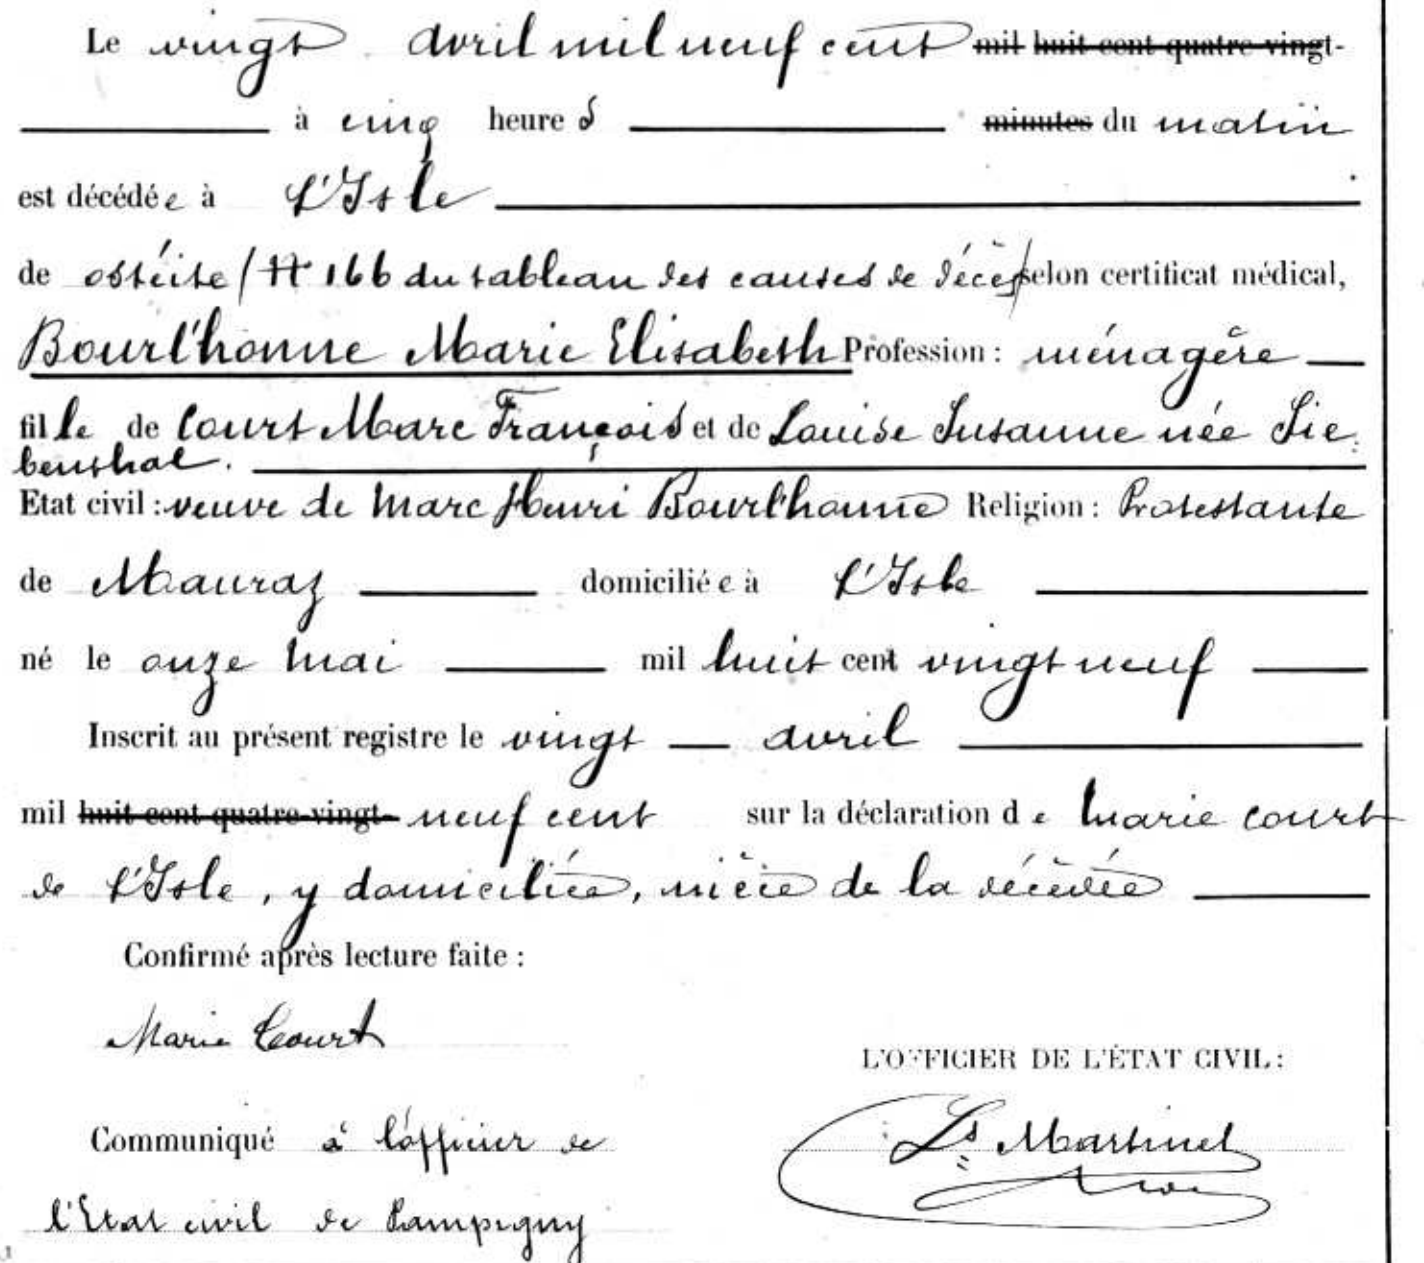 Le vingt avril mil neuf cent mil huit cent quatre-vingt-
à cinq heures minutes du matin
est décédée à L'Isle
de ostéite (N 166 du tableau des causes de décès) selon certificat médical,
Bourl'honne Marie Elisabeth Profession : ménagère
fille de Court Marc François et de Louise Susanne née Sie-
benthal.
Etat civil : veuve de Marc Henri Bourl'honne Religion : Protestante
de Mauraz domiciliée à L'Isle
né le onze mai mil huit cent vingt neuf
Inscrit au présent registre le vingt avril
mil huit cent quatre-vingt- neuf cent sur la déclaration de Marie Court
de L'Isle, y domiciliée, nièce de la décédée
Confirmé après lecture faite :
Marie Court
L'OFFICIER DE L'ÉTAT CIVIL :
Communiqué à l'officier de
Ls Martinet
l'Etat civil de Pampigny